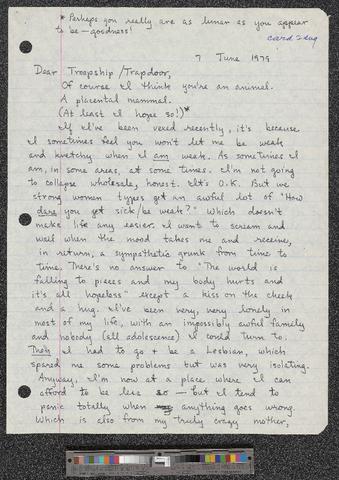 * Perhaps you really are as lunar as you appear
to be — goodness!
7 June 1979
Dear Troopship / Trapdoor,
Of course I think you're an animal.
A placental mammal.
(At least I hope so!)*
If I've been vexed recently, it's because
I sometimes feel you won't let me be weak
and kvetchy when I am weak. As sometimes I
am, in some areas, at some times. I'm not going
to collapse wholesale, honest. It's O.K. But we
strong women types get an awful lot of "How
dare you get sick / be weak?" which doesn't
make life any easier. I want to scream and
wail when the mood takes me and receive,
in return, a sympathetic grunk from time to
time. There's no answer to "The world is
falling to pieces and my body hurts and
it's all hopeless" except a kiss on the cheek
and a hug. I've been very, very lonely in
most of my life, with an impossibly awful family
and nobody (all adolescence) I could turn to.
Then I had to go & be a Lesbian, which
spared me some problems but was very isolating.
Anyway, I'm now at a place where I can
afford to be less so — but I tend to
panic totally when anything goes wrong.
Which is also from my truly crazy mother,